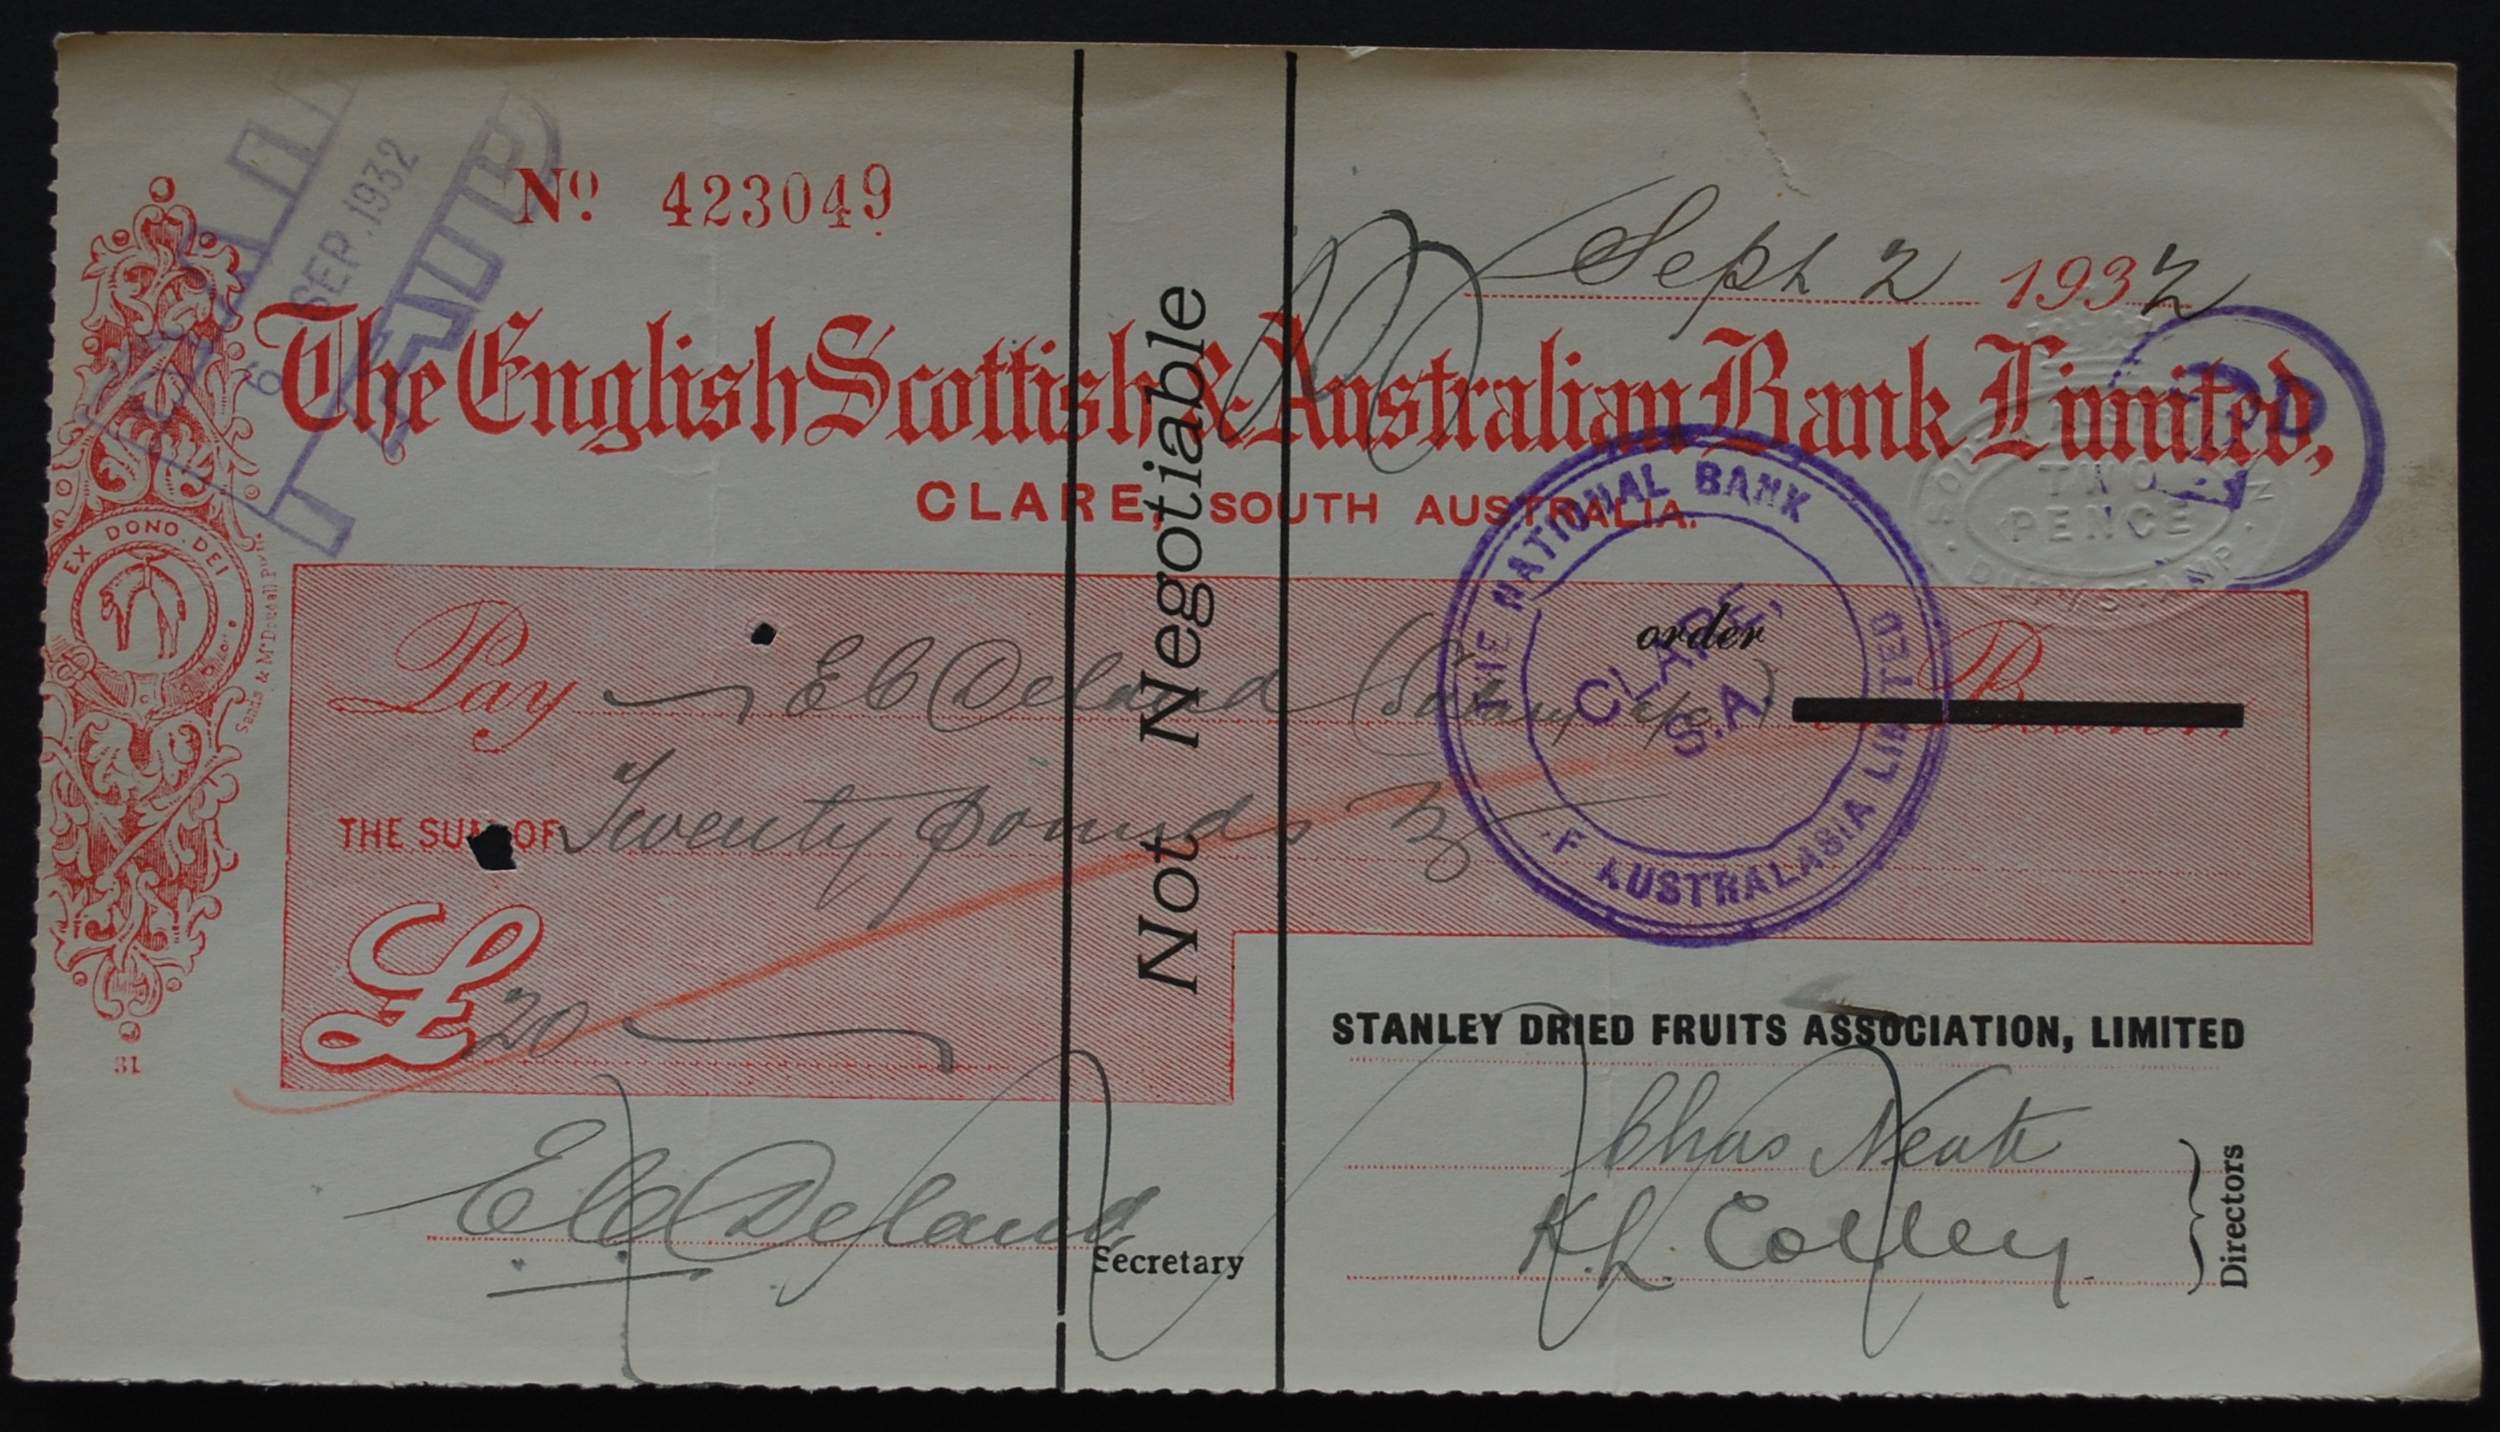 6 SEP. 1932
Nº 423049
Sept 2 1932
The English Scottish & Australian Bank Limited,
CLARE, SOUTH AUSTRALIA.
Not Negotiable
SOUTH AUSTRALIAN
TWO
PENCE
DUTY STAMP
EX DONO DEI
Sands & McDougall
THE NATIONAL BANK OF AUSTRALASIA LIMITED
CLARE,
S.A.
order
Pay E C Deland (Salary a/c) or Bearer
THE SUM OF Twenty pounds
£ 20
31
STANLEY DRIED FRUITS ASSOCIATION, LIMITED
Chas Neate
E C Deland
Secretary
K. L. Colley.
Directors